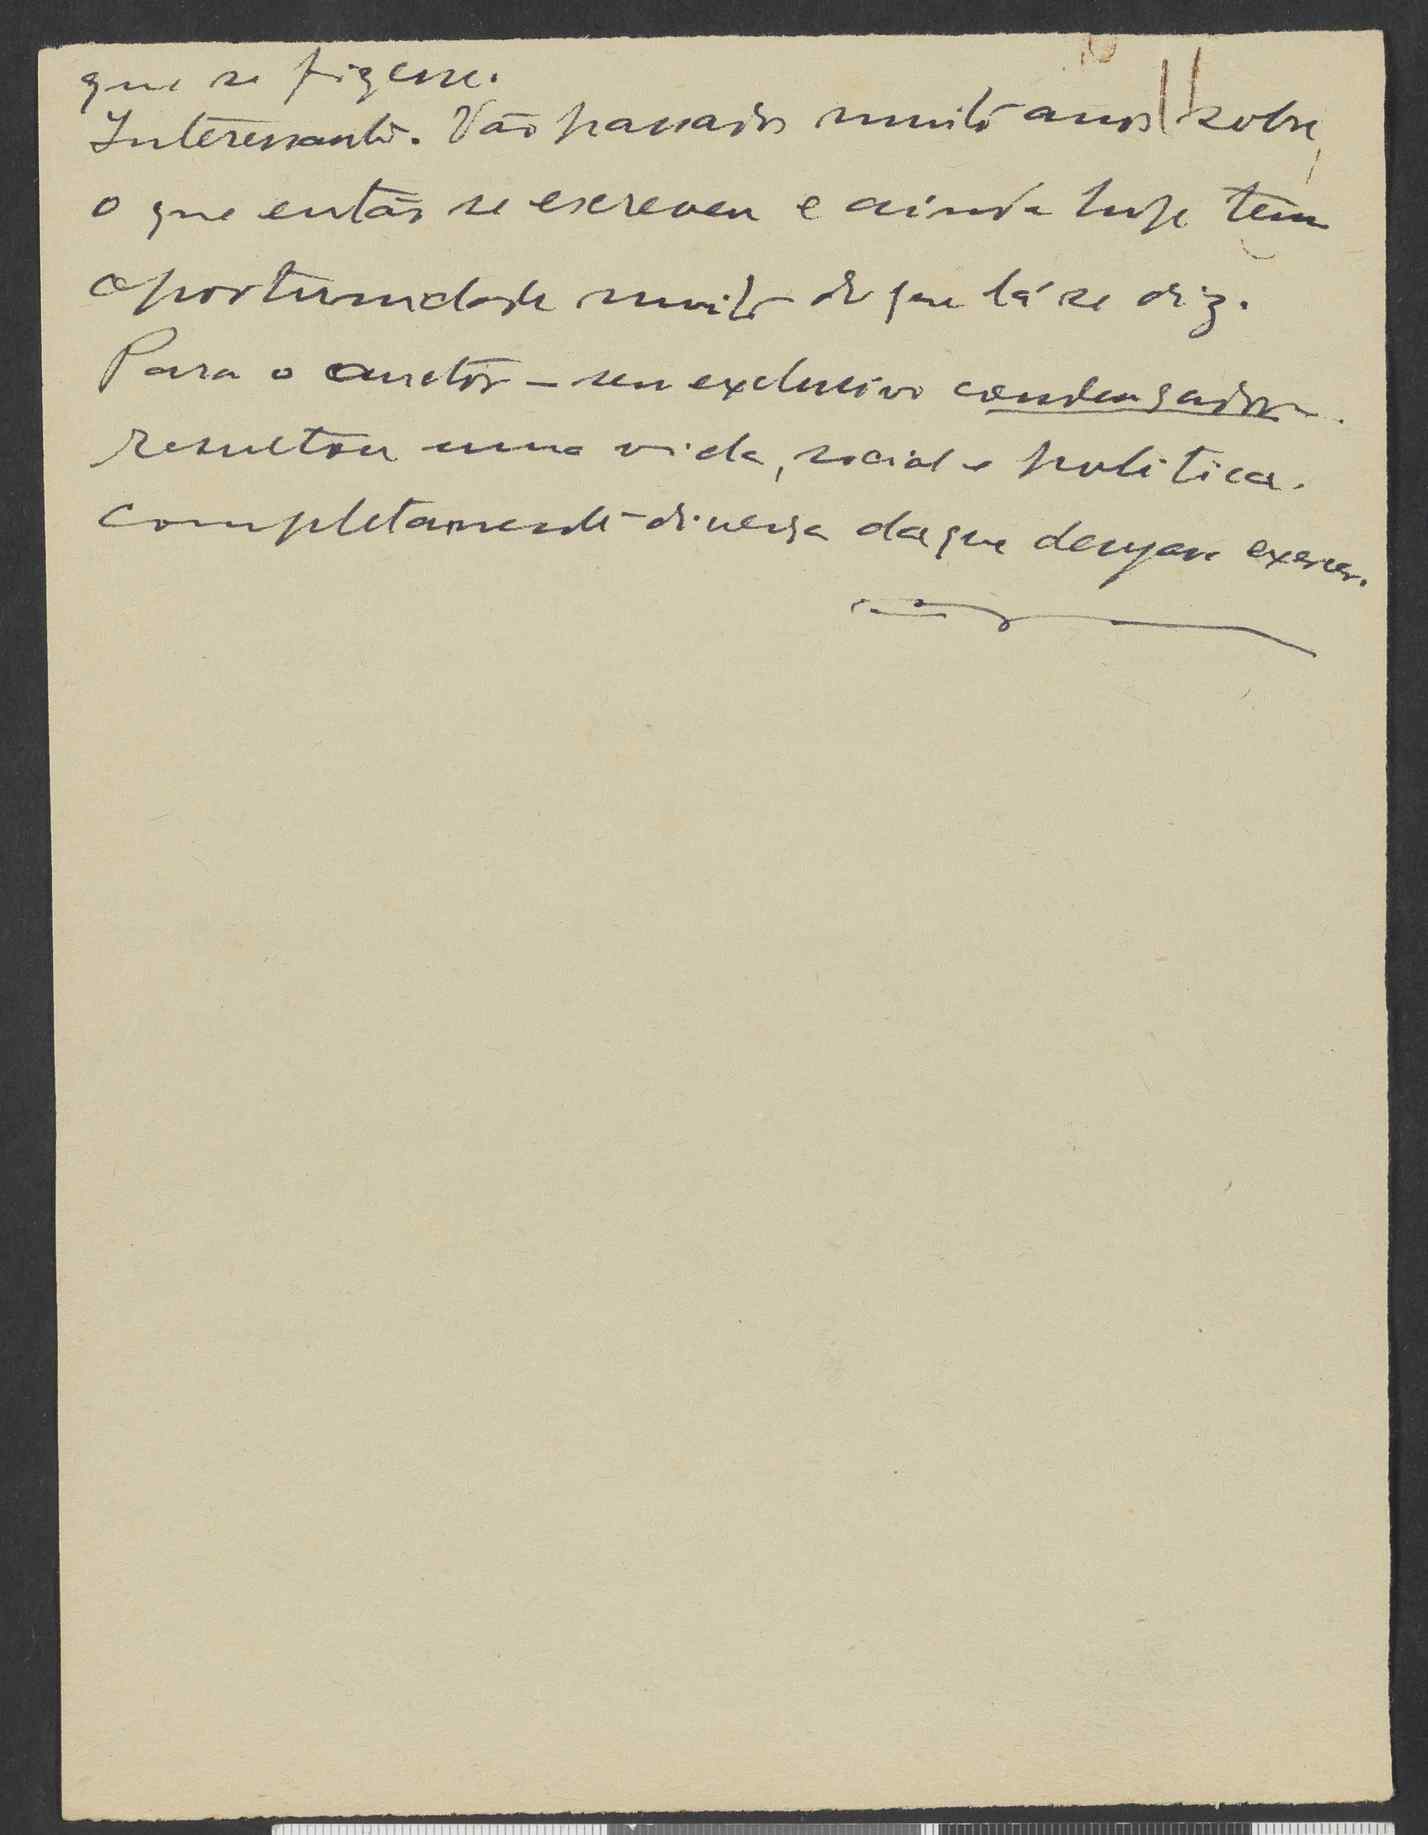 que se fizesse.
Interessante. Vão passados muitos anos sobre
o que então se escreveu e ainda hoje tem
oportunidade muito do que lá se diz.
Para o auctor – seu exclusivo condensador
resultou uma vida, social e politica.
completamente diversa da que desejava exercer.